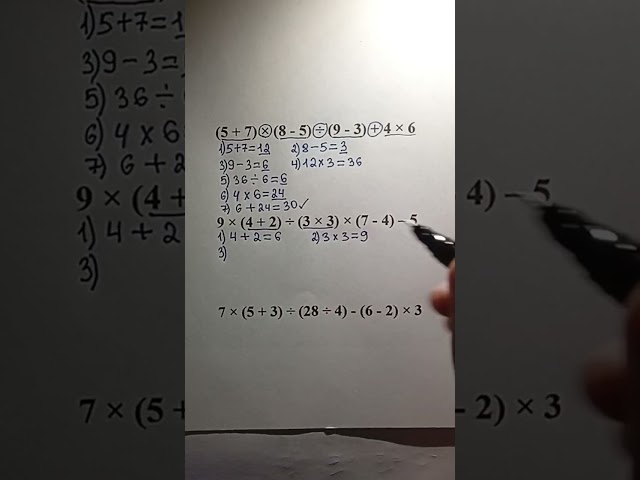 (5 + 7) × (8 - 5) ÷ (9 - 3) + 4 × 6
1) 5+7=12 2) 8-5=3
3) 9-3=6 4) 12×3=36
5) 36÷6=6
6) 4×6=24
7) 6+24=30✓
9 × (4 + 2) ÷ (3 × 3) × (7 - 4) - 5
1) 4+2=6 2) 3×3=9
3)
7 × (5 + 3) ÷ (28 ÷ 4) - (6 - 2) × 3